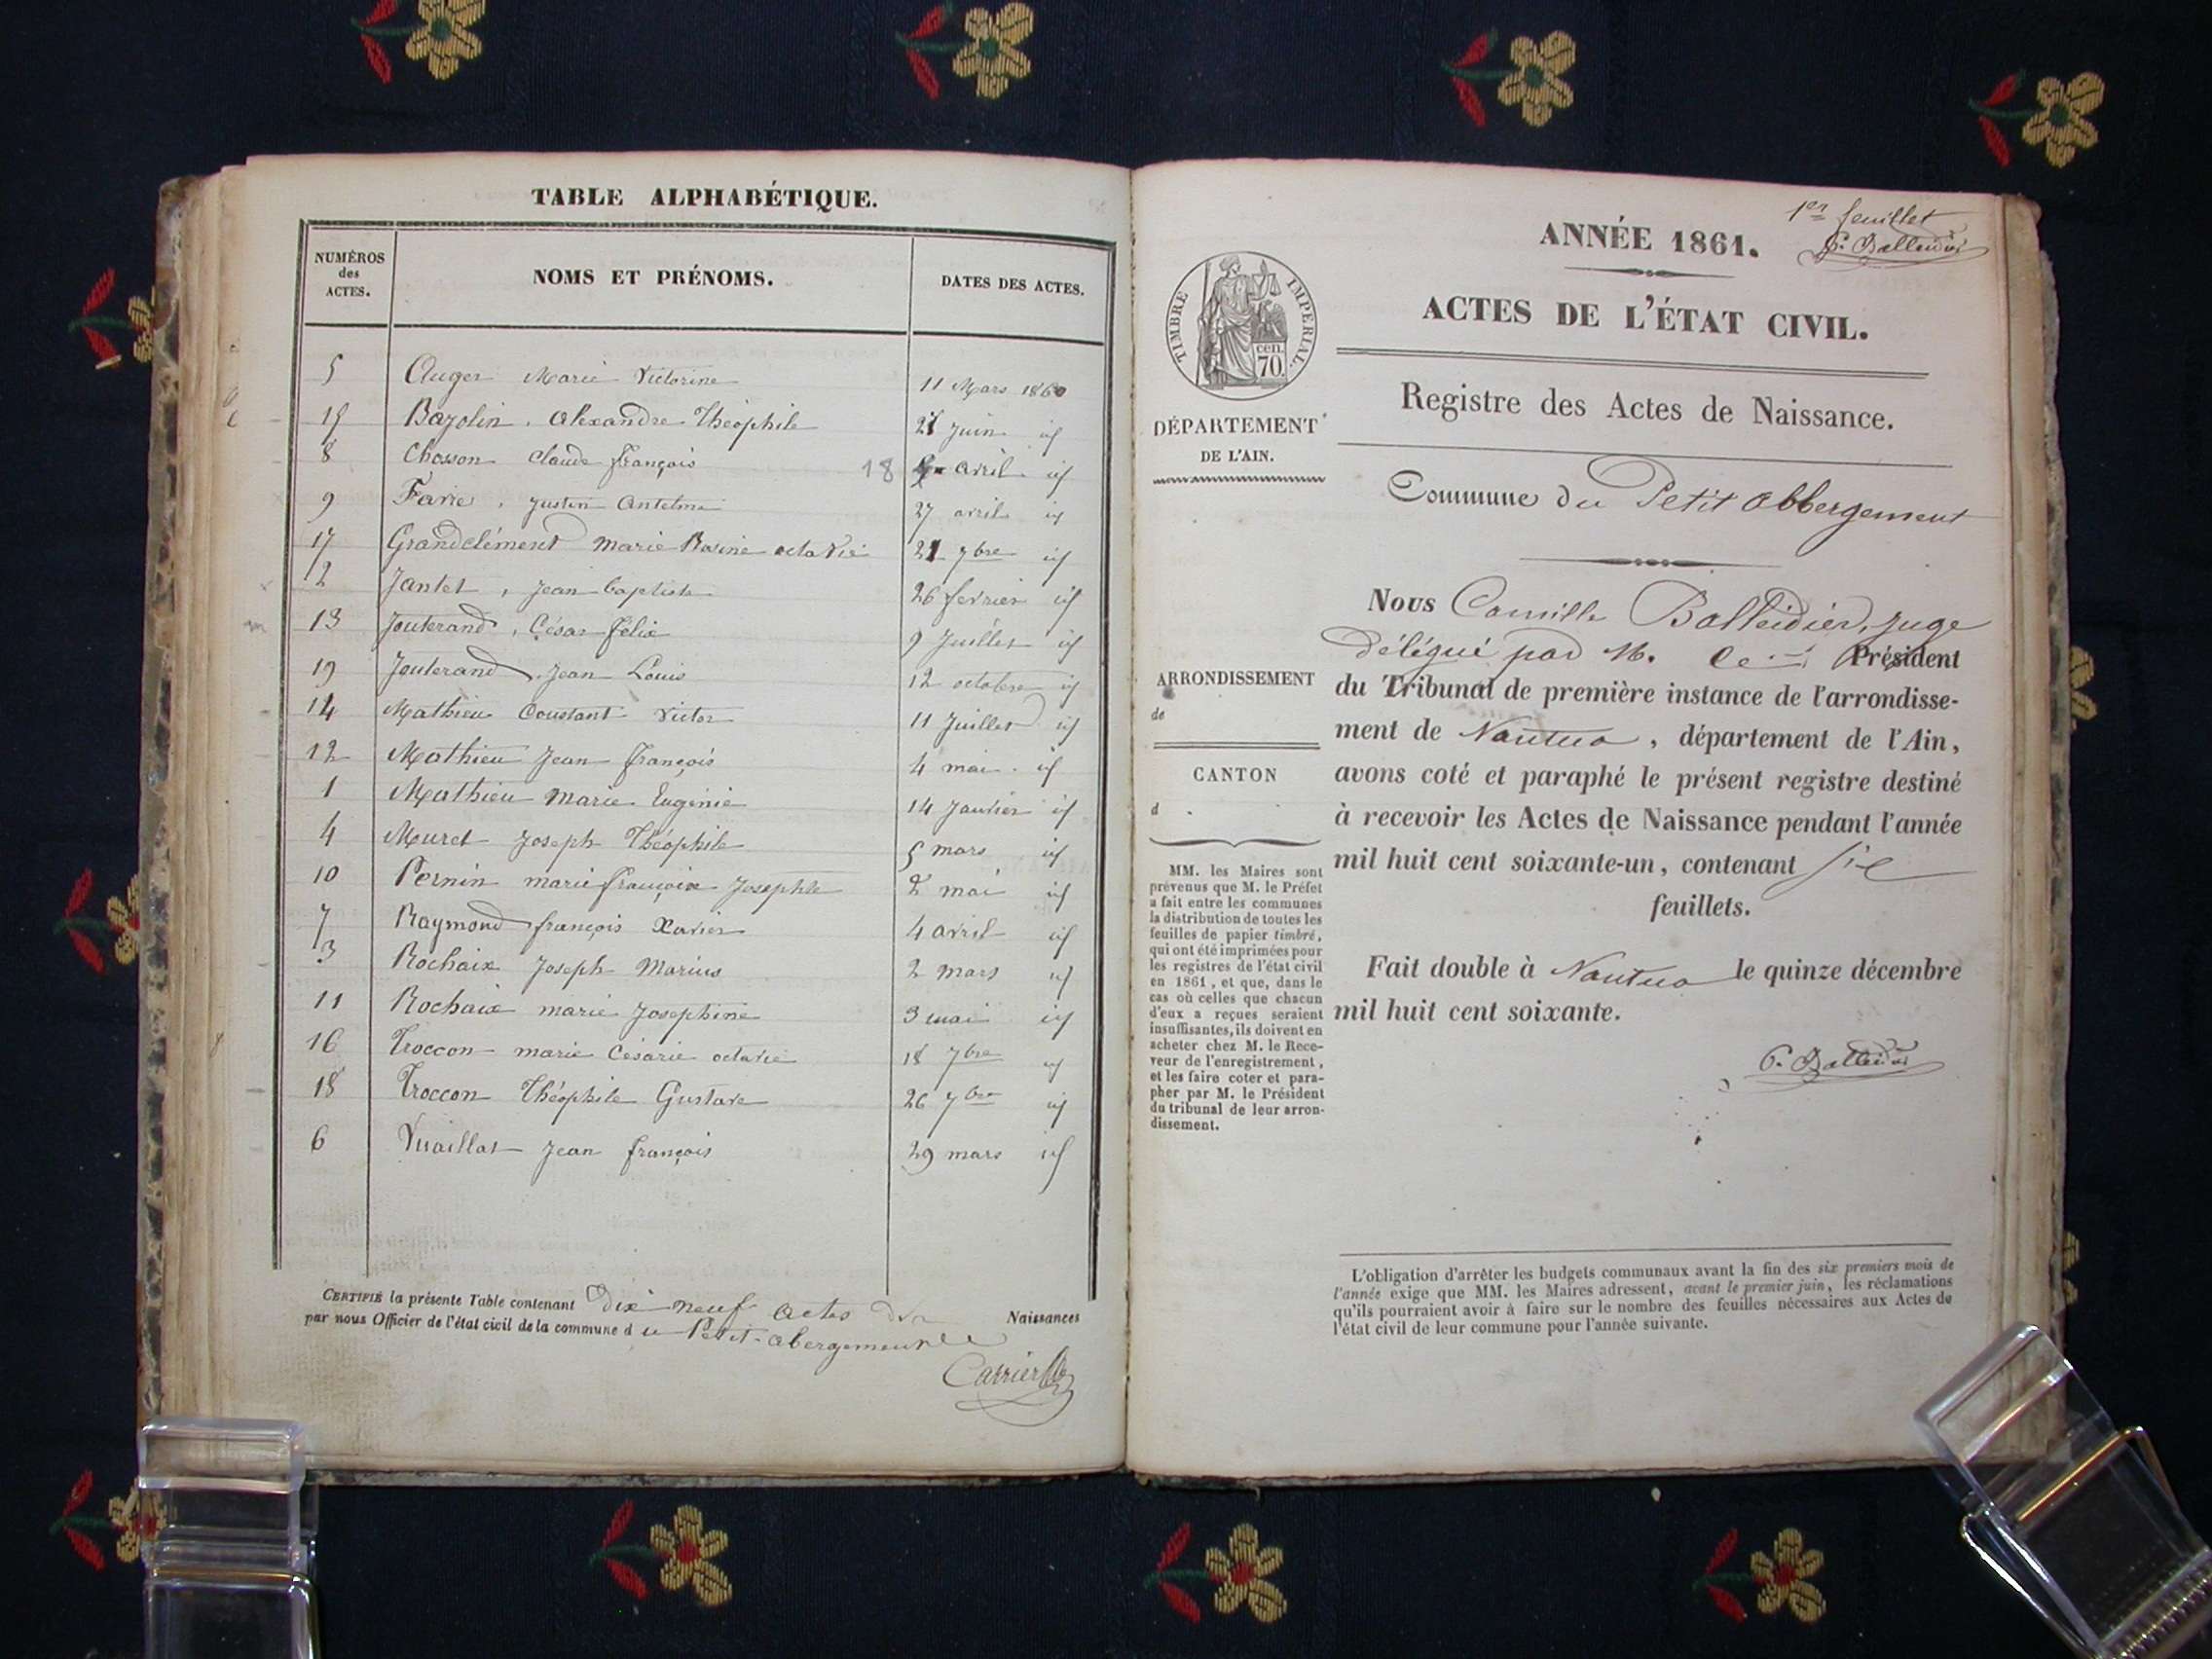 TABLE ALPHABÉTIQUE.
NUMÉROS des ACTES. NOMS ET PRÉNOMS. DATES DES ACTES.
5 Auger Marie Victorine 11 Mars 1860
15 Bazolin, Alexandre Théophile 21 juin id
8 Chosson Claude françois 18 avril id
9 Favre, Justin Antelme 27 avril id
17 Grandclément Marie Rosine octavie 21 7bre id
2 Jantet, Jean baptiste 26 fevrier id
13 Jouterand, César félix 9 Juillet id
19 Jouterand, Jean Louis 12 octobre id
14 Mathieu Constant Victor 11 Juillet id
12 Mathieu Jean françois 4 mai id
1 Mathieu Marie Eugénie 14 Janvier id
4 Muret Joseph Théophile 5 mars id
10 Pernin marie françoise Josephte 2 mai id
7 Raymond françois Xavier 4 avril id
3 Rochaix Joseph Marius 2 mars id
11 Rochaix marie Josephine 3 mai id
16 Troccon marie Césarie octavie 18 7bre id
18 Troccon Théophile Gustave 26 7bre id
6 Vuaillat Jean françois 29 mars id
CERTIFIÉ la présente Table contenant Dix neuf actes de Naissances
par nous Officier de l'état civil de la commune du Petit-abergement
Carrier
1er feuillet
C. Balleidier
ANNÉE 1861.
ACTES DE L'ÉTAT CIVIL.
Registre des Actes de Naissance.
Commune du Petit abbergement
TIMBRE IMPÉRIAL.
cen.
70.
DÉPARTEMENT
DE L'AIN.
ARRONDISSEMENT
de
CANTON
d
MM. les Maires sont
prévenus que M. le Préfet
a fait entre les communes
la distribution de toutes les
feuilles de papier timbré,
qui ont été imprimées pour
les registres de l'état civil
en 1861, et que, dans le
cas où celles que chacun
d'eux a reçues seraient
insuffisantes, ils doivent en
acheter chez M. le Rece-
veur de l'enregistrement,
et les faire coter et para-
pher par M. le Président
du tribunal de leur arron-
dissement.
Nous Camille Balleidier, juge
délégué par M. le Président
du Tribunal de première instance de l'arrondisse-
ment de Nantua, département de l'Ain,
avons coté et paraphé le présent registre destiné
à recevoir les Actes de Naissance pendant l'année
mil huit cent soixante-un, contenant six
feuillets.
Fait double à Nantua le quinze décembre
mil huit cent soixante.
C. Balleidier
L'obligation d'arrêter les budgets communaux avant la fin des six premiers mois de
l'année exige que MM. les Maires adressent, avant le premier juin, les réclamations
qu'ils pourraient avoir à faire sur le nombre des feuilles nécessaires aux Actes de
l'état civil de leur commune pour l'année suivante.